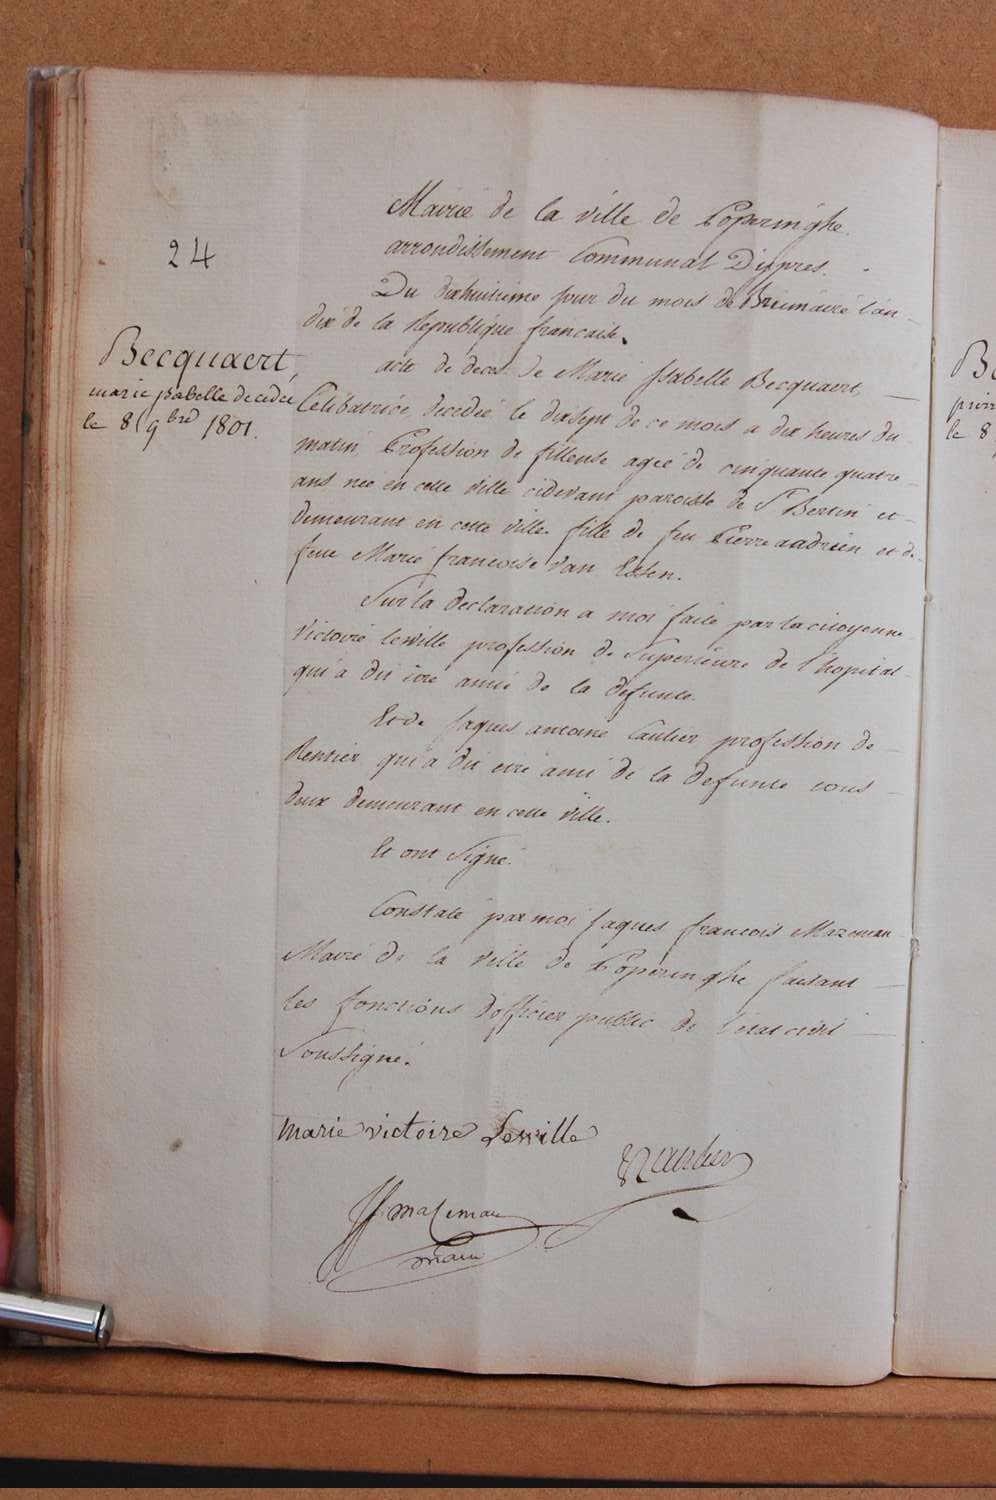 24
Becquaert,
marie isabelle decedée
le 8 9bre 1801.
Mairie de la ville de Poperinghe
arrondissement Communal D'ypres.
Du dixhuitieme jour du mois de Brumaire l'an
dix de la Republique francaise.
acte de deces de Marie Isabelle Becquaert,
Celibatrice, decedée le dixsept de ce mois a dix heures du
matin, Profession de filleuse agée de cinquante quatre
ans née en cette ville cidevant paroisse de St Bertin et
demeurant en cette ville. fille de feu Pierre andrien et de
feue Marie francoise Van Essen.
Sur la declaration a moi faite par la citoyenne
Victoire lewille profession de Superieure de l'hopital
qui a dit être amie de la defunte.
Et de Jaques antoine Caulier profession de
Rentier qui a dit etre ami de la defunte tous
deux demeurant en cette ville.
Et ont signé.
Constaté par moi Jaques francois Mazeman
Maire de la ville de Poperinghe faisant
les fonctions d'officier public de l'etat civil
Soussigné.
marie victoire Lewille
JJ mazeman
maire
Be
le 8